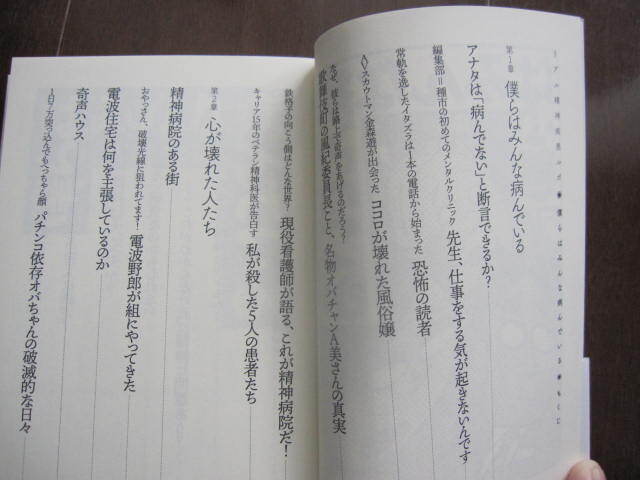 リアル精神病患ルポ＊僕らはみんな病んでいる＊もくじ
第1章 僕らはみんな病んでいる
アナタは「病んでない」と断言できるか？
編集部＝種市の初めてのメンタルクリニック 先生、仕事をする気が起きないんです
常軌を逸したイタズラは1本の電話から始まった 恐怖の読者
AVスカウトマン金森遊が出会った ココロが壊れた風俗嬢
なぜ、彼女は路上で奇声をあげるのだろう？
歌舞伎町の風紀委員長こと、名物オバチャンA美さんの真実
鉄格子の向こう側はどんな世界？ 現役看護師が語る、これが精神病院だ！
キャリア15年のベテラン精神科医が告白す 私が殺した5人の患者たち
第2章 心が壊れた人たち
精神病院のある街
おやっさん、破壊光線に狙われてます！ 電波野郎が組にやってきた
電波住宅は何を主張しているのか
奇声ハウス
1日3万突っ込んでもへっちゃら顔 パチンコ依存オバちゃんの破滅的な日々